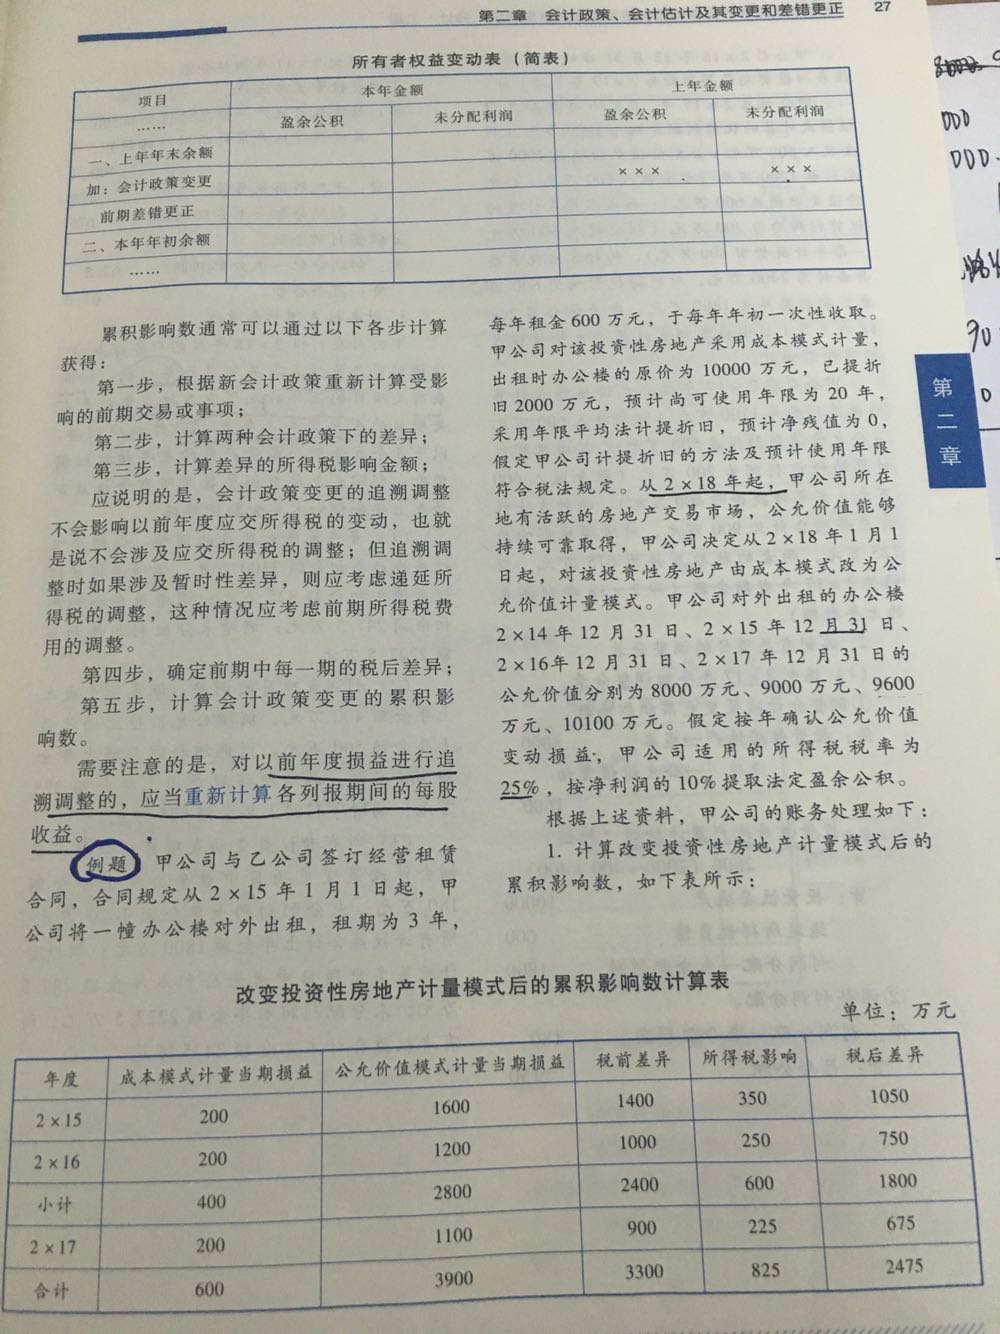 第二章 会计政策、会计估计及其变更和差错更正 27
所有者权益变动表（简表）
项目 本年金额 上年金额
…… 盈余公积 未分配利润 盈余公积 未分配利润
一、上年年末余额
加：会计政策变更 ××× ×××
前期差错更正
二、本年年初余额
……
累积影响数通常可以通过以下各步计算
获得：
第一步，根据新会计政策重新计算受影
响的前期交易或事项；
第二步，计算两种会计政策下的差异；
第三步，计算差异的所得税影响金额；
应说明的是，会计政策变更的追溯调整
不会影响以前年度应交所得税的变动，也就
是说不会涉及应交所得税的调整；但追溯调
整时如果涉及暂时性差异，则应考虑递延所
得税的调整，这种情况应考虑前期所得税费
用的调整。
第四步，确定前期中每一期的税后差异；
第五步，计算会计政策变更的累积影
响数。
需要注意的是，对以前年度损益进行追
溯调整的，应当重新计算各列报期间的每股
收益。
例题 甲公司与乙公司签订经营租赁
合同，合同规定从 2×15 年 1 月 1 日起，甲
公司将一幢办公楼对外出租，租期为 3 年，
每年租金 600 万元，于每年年初一次性收取。
甲公司对该投资性房地产采用成本模式计量，
出租时办公楼的原价为 10000 万元，已提折
旧 2000 万元，预计尚可使用年限为 20 年，
采用年限平均法计提折旧，预计净残值为 0，
假定甲公司计提折旧的方法及预计使用年限
符合税法规定。从 2×18 年起，甲公司所在
地有活跃的房地产交易市场，公允价值能够
持续可靠取得，甲公司决定从 2×18 年 1 月 1
日起，对该投资性房地产由成本模式改为公
允价值计量模式。甲公司对外出租的办公楼
2×14 年 12 月 31 日、2×15 年 12 月 31 日、
2×16年 12 月 31 日、2×17 年 12 月 31 日的
公允价值分别为 8000 万元、9000 万元、9600
万元、10100 万元。假定按年确认公允价值
变动损益，甲公司适用的所得税税率为
25%，按净利润的 10% 提取法定盈余公积。
根据上述资料，甲公司的账务处理如下：
1. 计算改变投资性房地产计量模式后的
累积影响数，如下表所示：
第二章
改变投资性房地产计量模式后的累积影响数计算表
单位：万元
年度 成本模式计量当期损益 公允价值模式计量当期损益 税前差异 所得税影响 税后差异
2×15 200 1600 1400 350 1050
2×16 200 1200 1000 250 750
小计 400 2800 2400 600 1800
2×17 200 1100 900 225 675
合计 600 3900 3300 825 2475